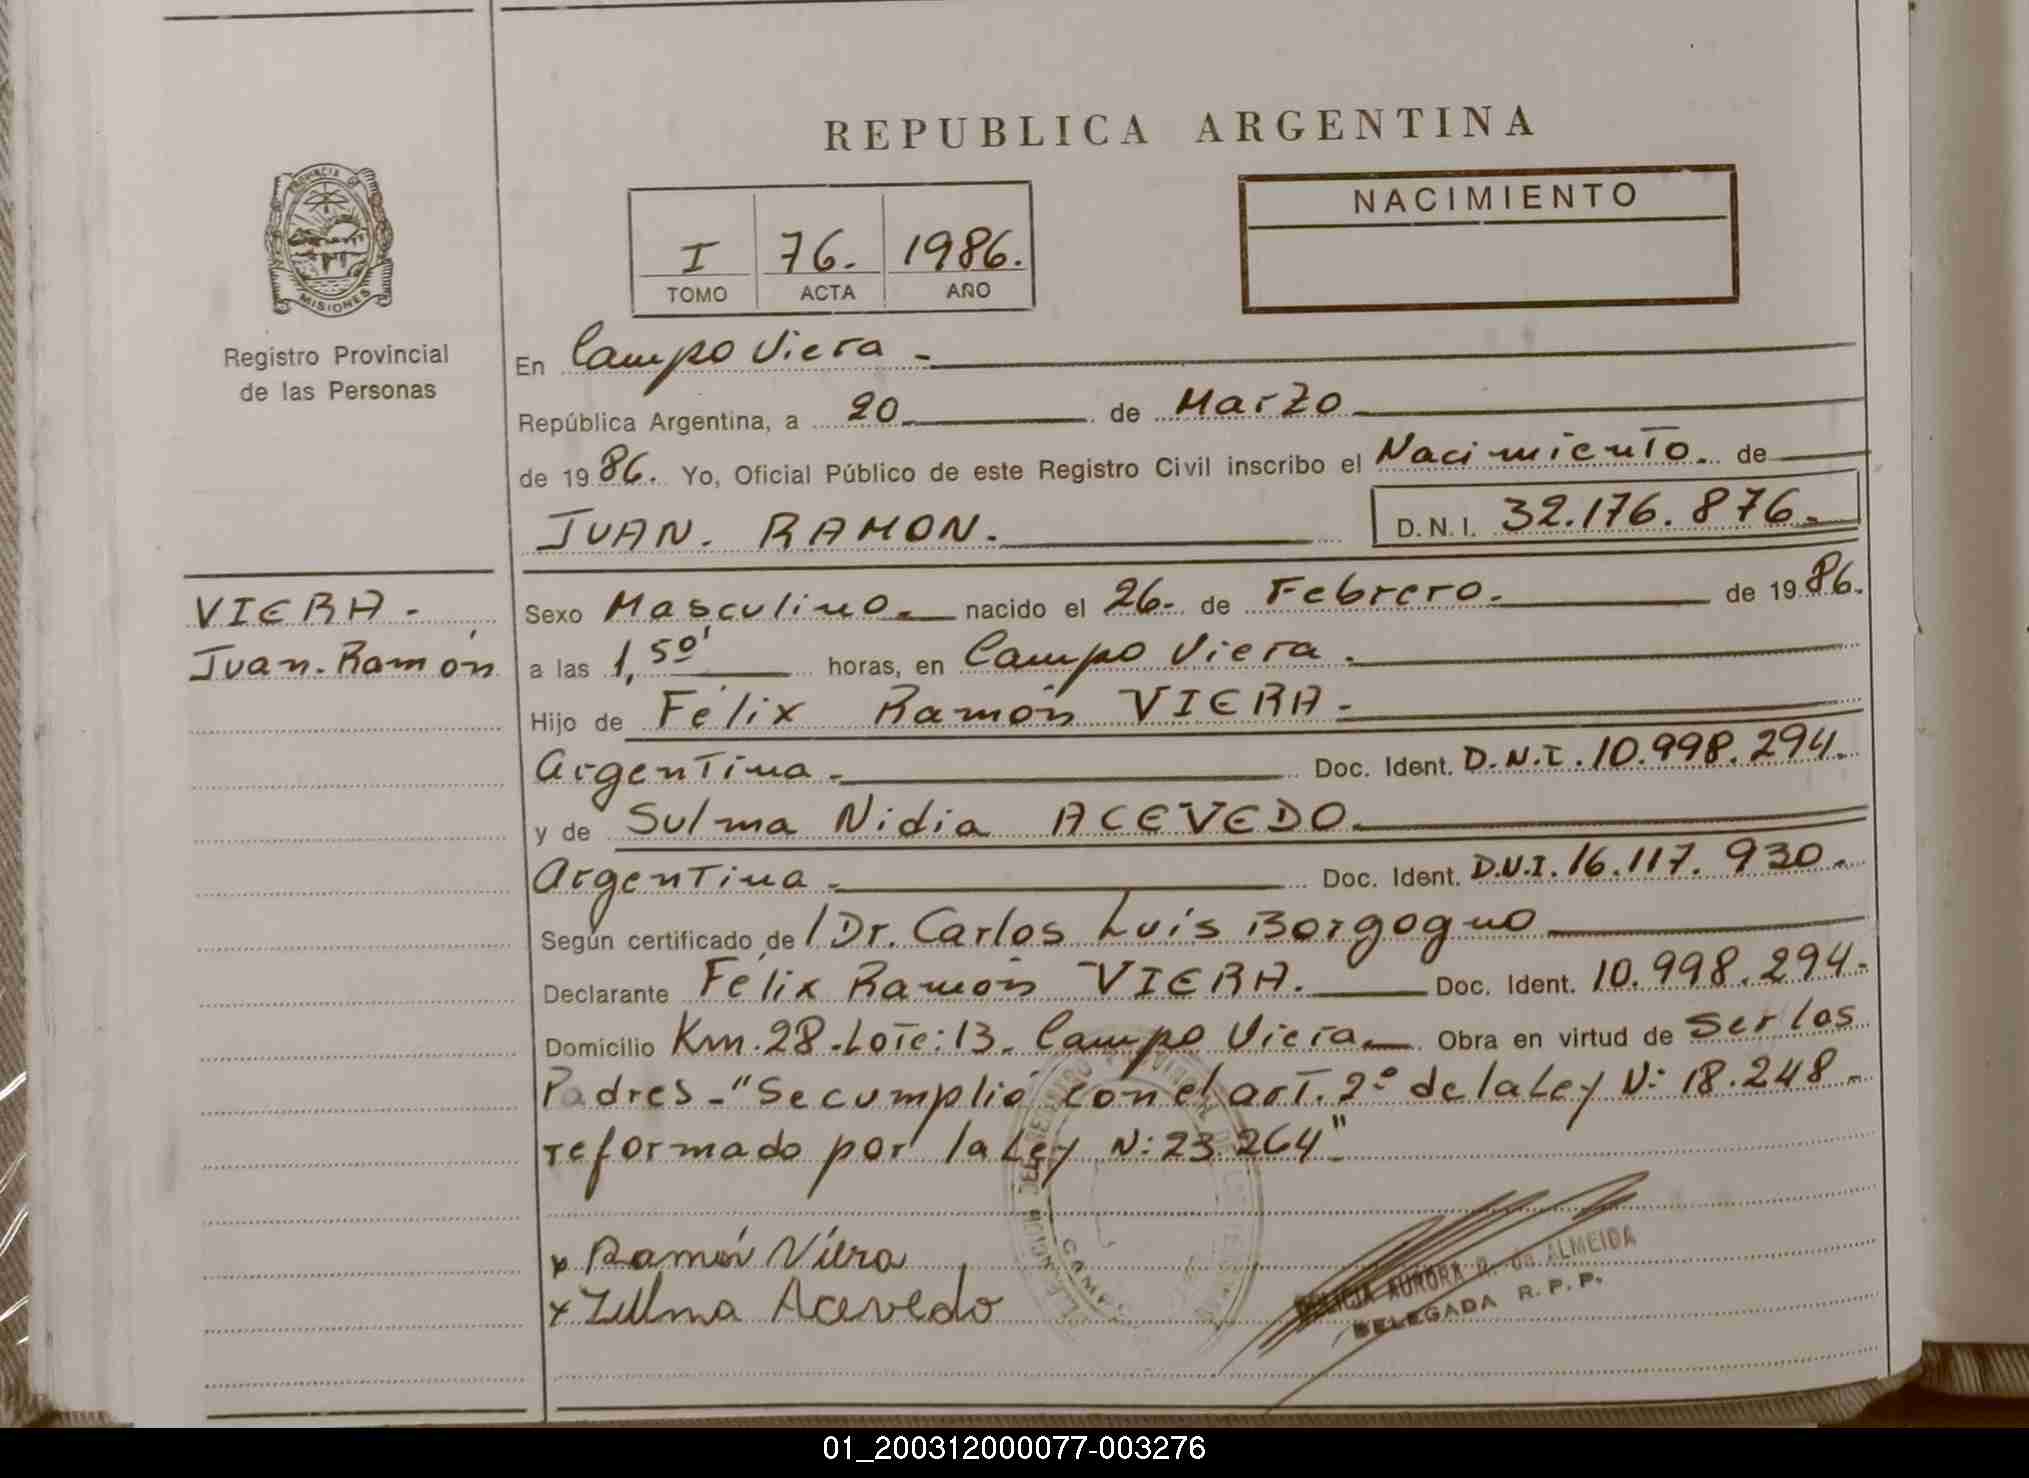 REPUBLICA ARGENTINA
PROVINCIA DE
MISIONES
Registro Provincial
de las Personas
NACIMIENTO
I 76. 1986.
TOMO ACTA AÑO
En Campo Viera -
República Argentina, a 20 de Marzo
de 1986. Yo, Oficial Público de este Registro Civil inscribo el Nacimiento. de
JUAN. RAMON. D.N.I. 32.176.876.-
VIERA -
Juan. Ramón
Sexo Masculino.- nacido el 26- de Febrero.- de 1986.
a las 1,50' horas, en Campo Viera.-
Hijo de Félix Ramón VIERA -
Argentina.- Doc. Ident. D.N.I. 10.998.294.
y de Sulma Nidia ACEVEDO.
Argentina.- Doc. Ident. D.N.I. 16.117.930.-
Según certificado de / Dr. Carlos Luis Borgogno
Declarante Félix Ramón VIERA. Doc. Ident. 10.998.294-
Domicilio Km. 28-Lote: 13. Campo Viera.- Obra en virtud de Ser los
Padres -"Se cumplió con el art. 2º de la Ley N: 18.248-
reformado por la Ley N: 23.264"-
x Ramón Viera
x Zulma Acevedo
AURORA R. de ALMEIDA
DELEGADA R.P.P.
01_200312000077-003276